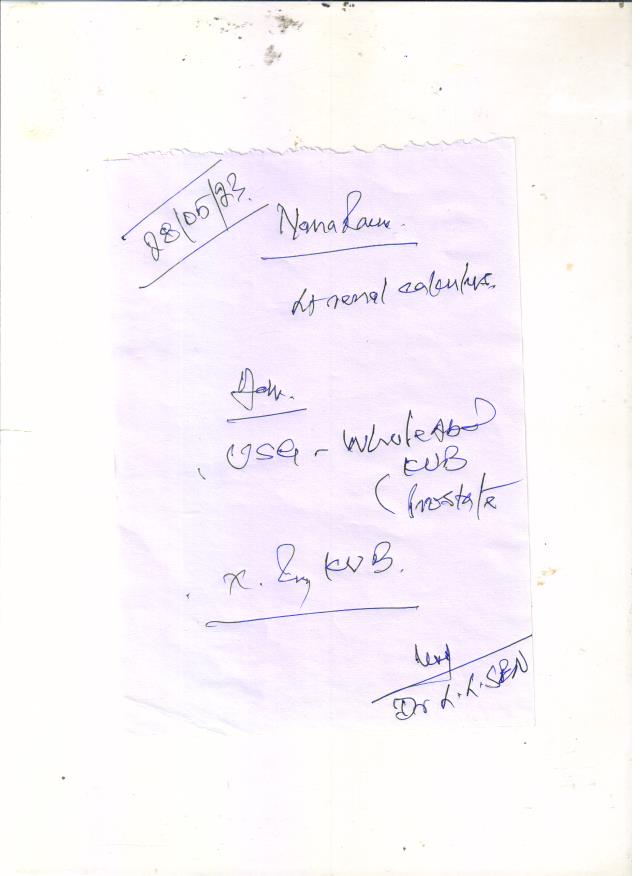 28/05/23.
Nona Ram.
Lt renal calculus.
Adv.
USG - Whole Abd
KUB
Prostate
X. Ray KUB.
Dr L.L.SEN